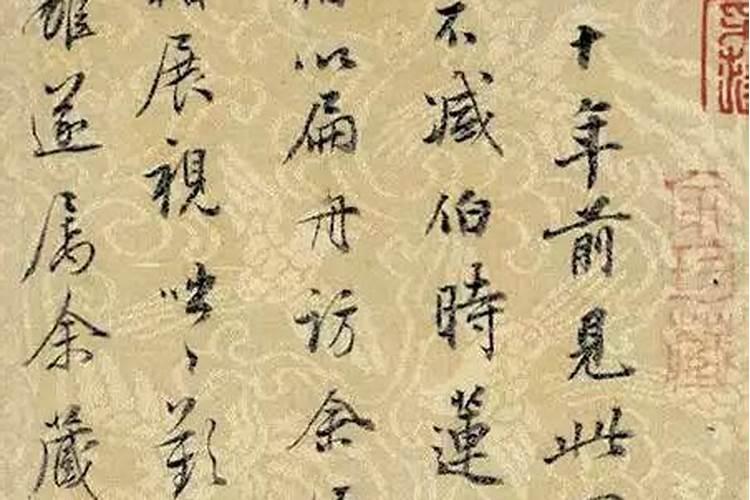 十年前見此
不減伯時蓮
以扁舟訪余
展視咄々歎
遂屬余藏